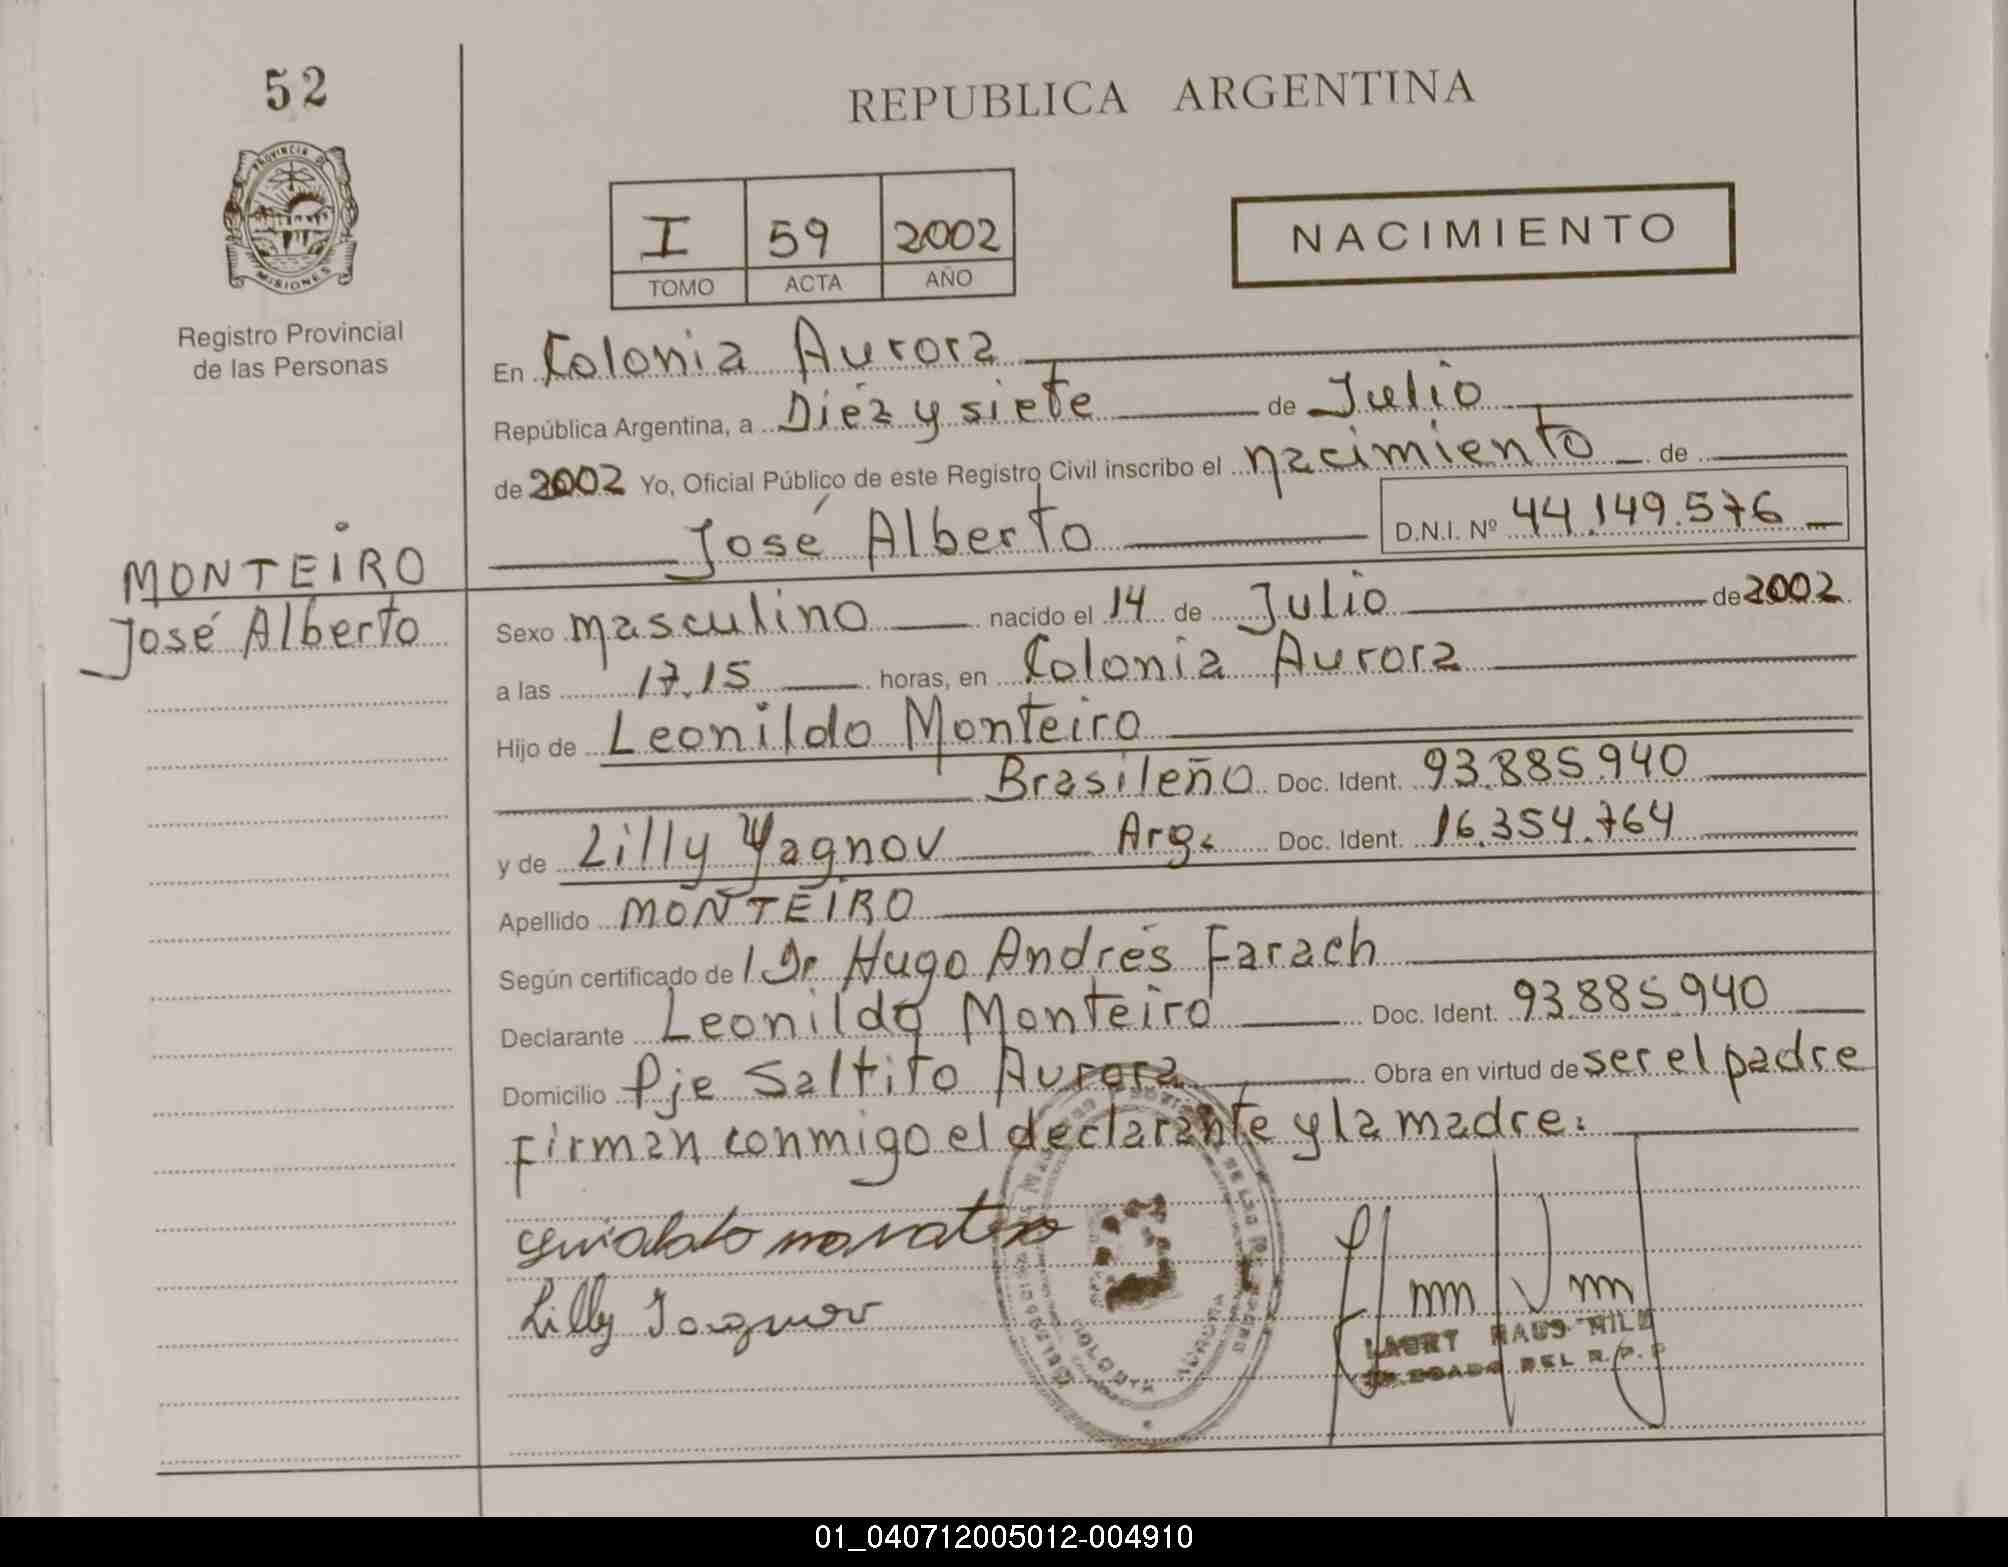 52
PROVINCIA DE
MISIONES
Registro Provincial
de las Personas
MONTEIRO
José Alberto
REPUBLICA ARGENTINA
I 59 2002
TOMO ACTA AÑO
NACIMIENTO
En Colonia Aurora
República Argentina, a Diez y siete de Julio
de 2002 Yo, Oficial Público de este Registro Civil inscribo el nacimiento de
José Alberto D.N.I. Nº 44.149.576
Sexo masculino nacido el 14 de Julio de 2002
a las 17.15 horas, en Colonia Aurora
Hijo de Leonildo Monteiro
Brasileño Doc. Ident. 93.885.940
y de Lilly Yagnov Arg. Doc. Ident. 16.354.764
Apellido MONTEIRO
Según certificado de Dr Hugo Andrés Farach
Declarante Leonildo Monteiro Doc. Ident. 93.885.940
Domicilio Pje Saltito Aurora Obra en virtud de ser el padre
Firman conmigo el declarante y la madre:
Lilly
COLONIA AURORA
DEL R.P.P
01_040712005012-004910